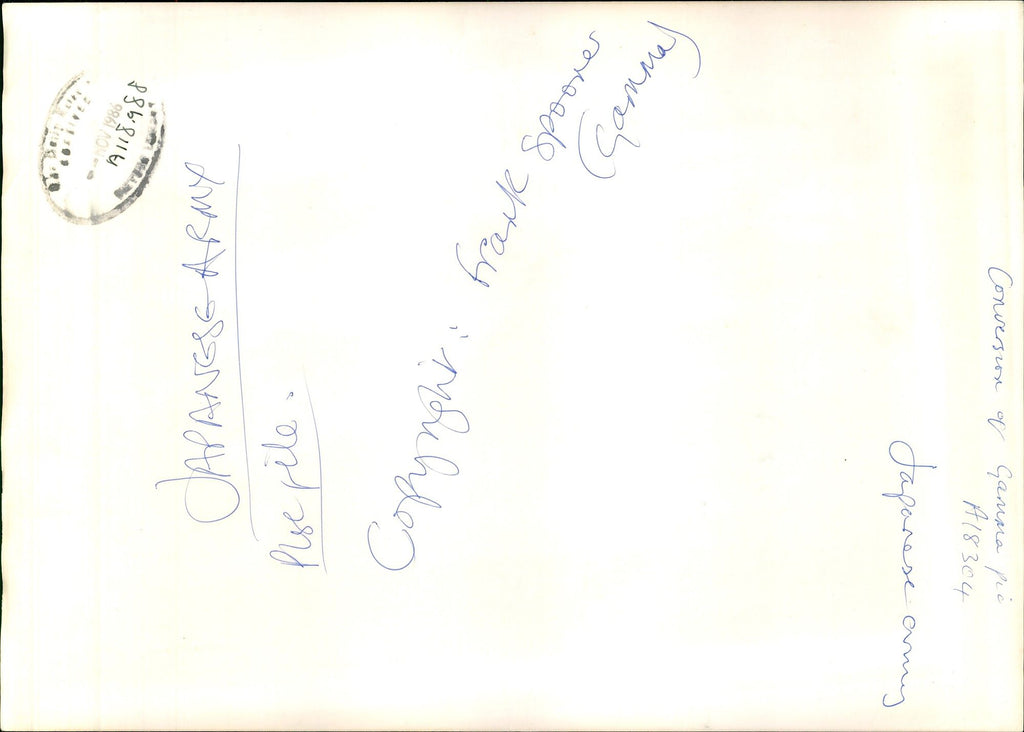 NOV 1986
A118.988
JAPANESE ARMY
Plse file.
Copyright: Frank Spooner
(Gamma)
Japanese army
Conversion of Gamma pic
A18304